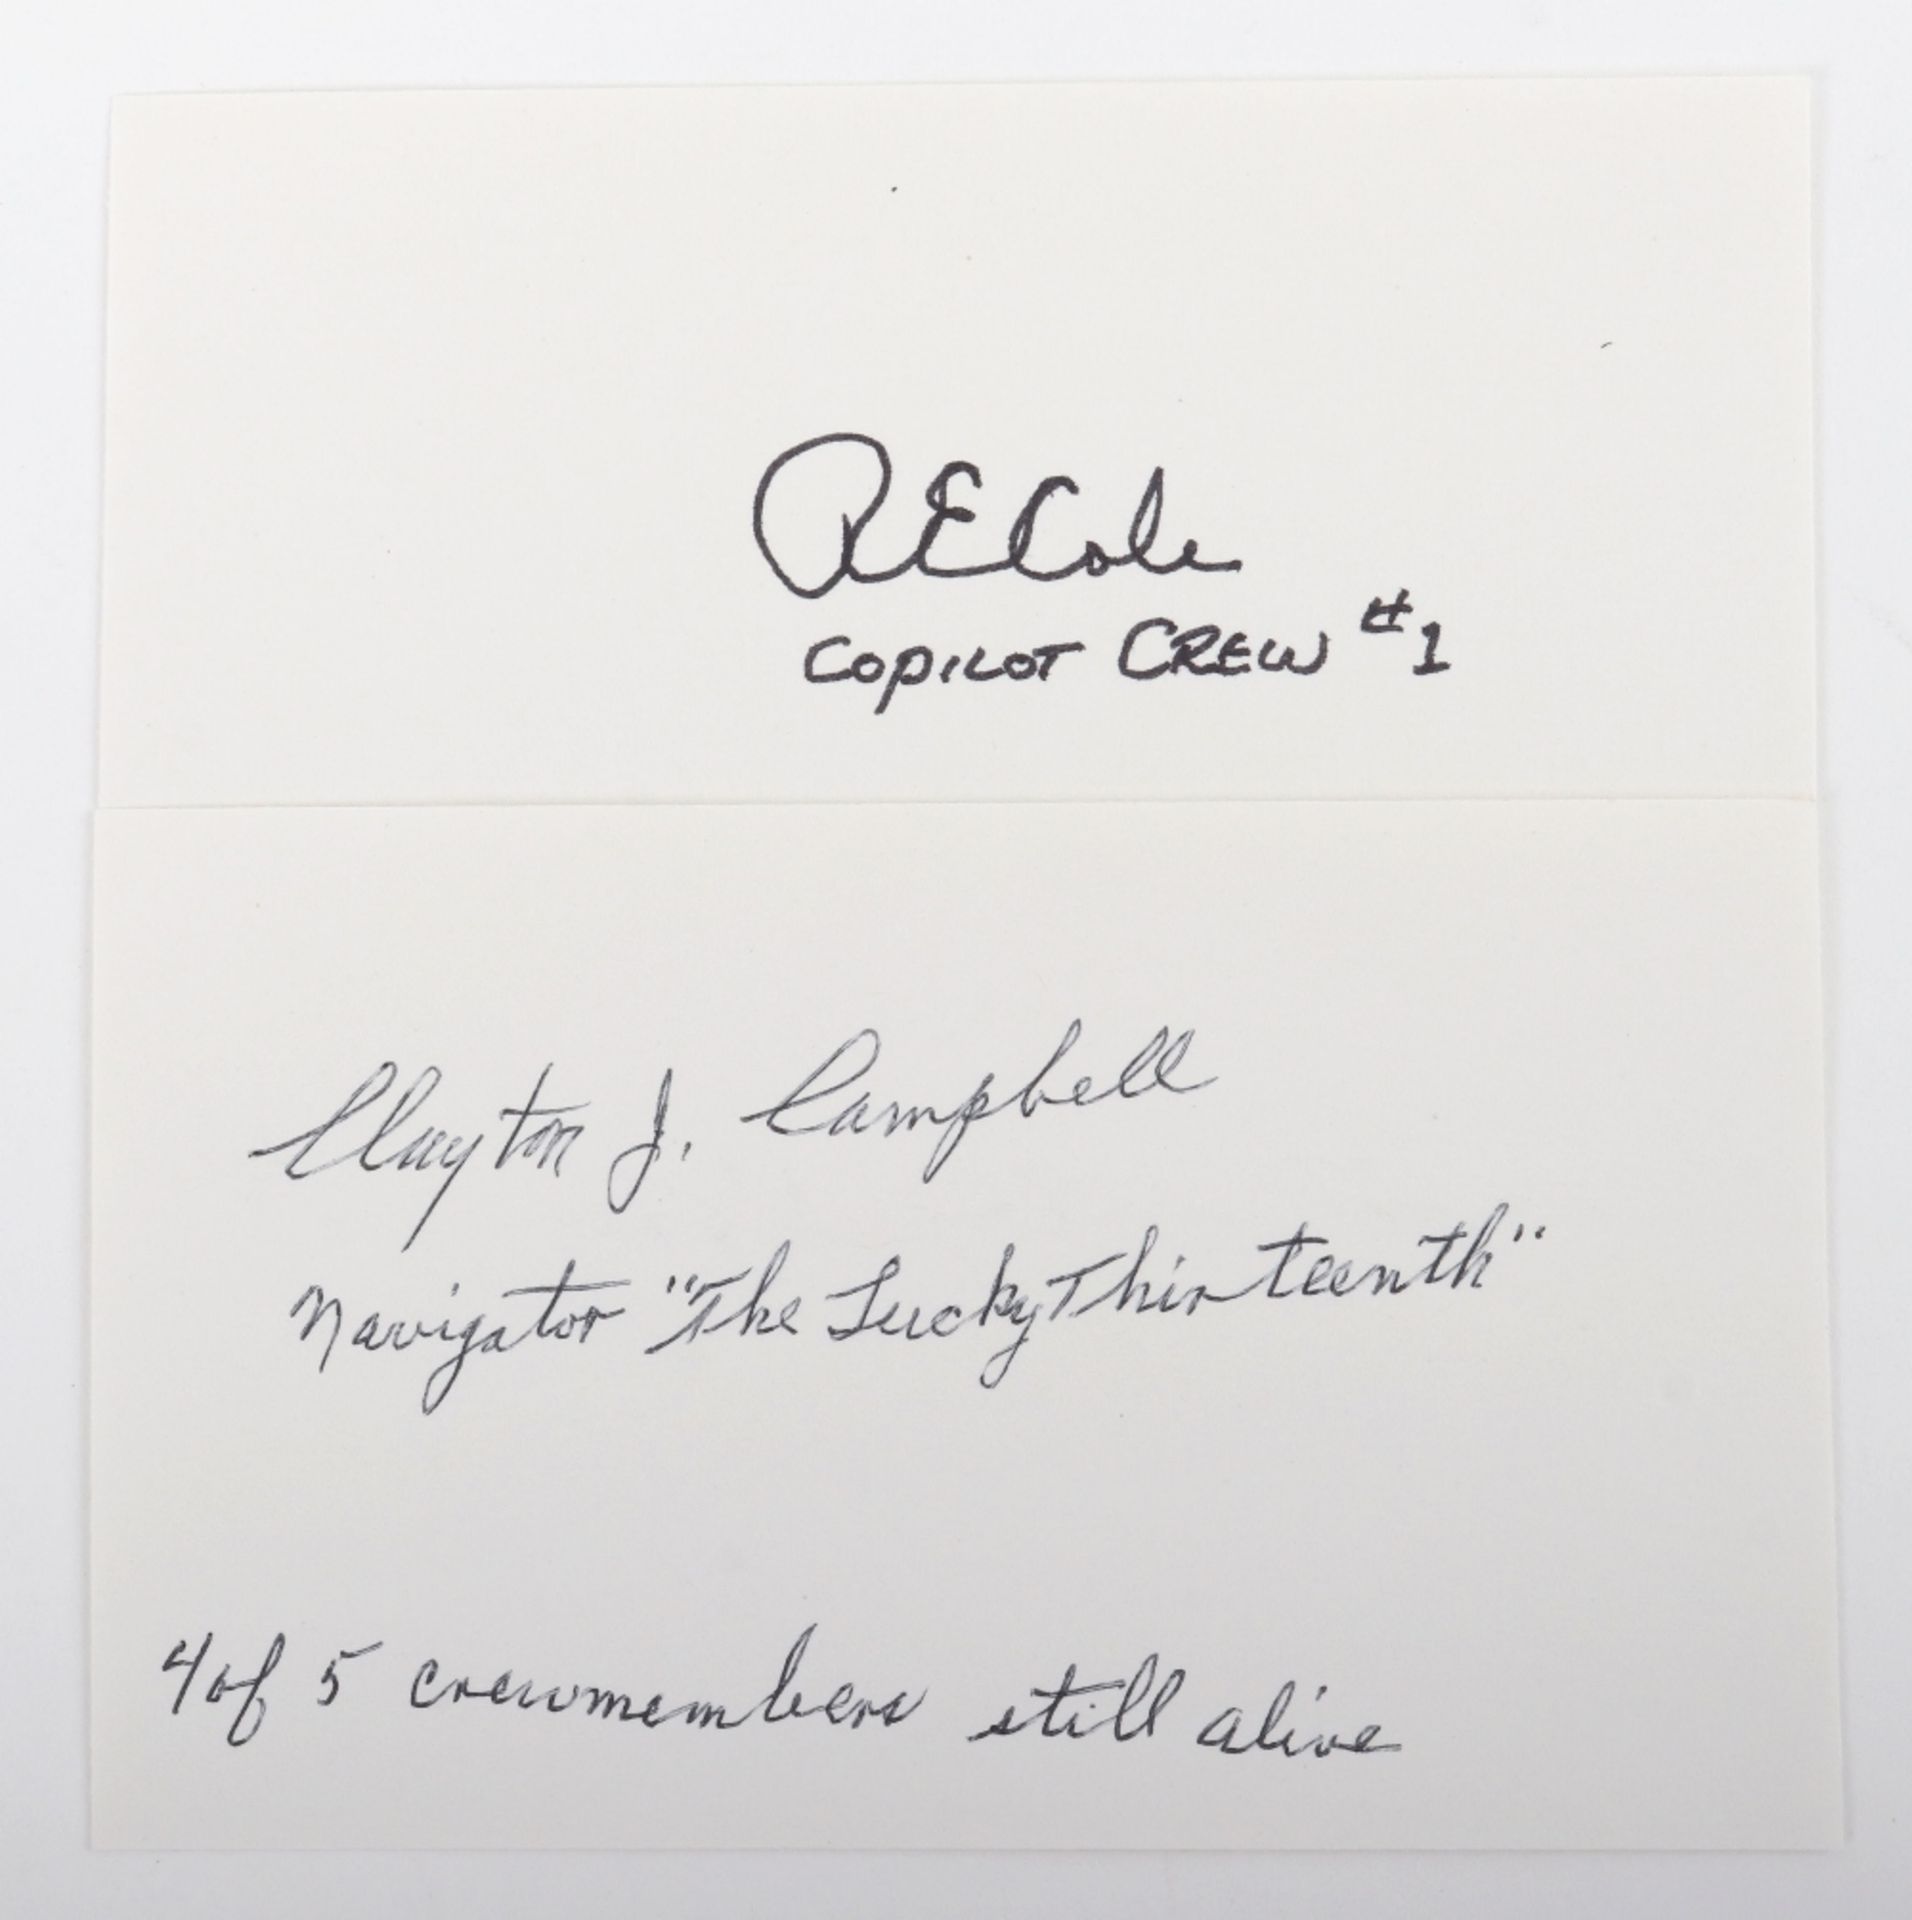 RECole
COPILOT CREW #1
Clayton J. Campbell
Navigator "The Lucky Thirteenth"
4 of 5 crewmembers still alive